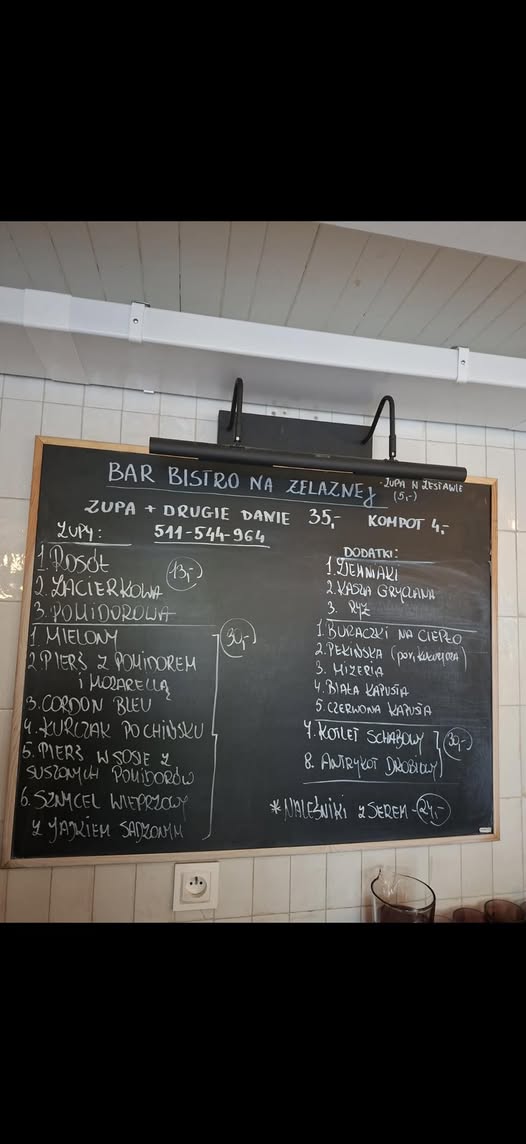 BAR BISTRO NA ŻELAZNEJ
- ZUPA W ZESTAWIE
(5,-)
ZUPA + DRUGIE DANIE 35,- KOMPOT 4,-
511-544-964
ZUPY:
1. ROSÓŁ
2. ZACIERKOWA
3. POMIDOROWA
13,-
1. MIELONY
2. PIERŚ Z POMIDOREM
I MOZARELLĄ
3. CORDON BLEU
4. KURCZAK PO CHIŃSKU
5. PIERŚ W SOSIE Z
SUSZONYCH POMIDORÓW
6. SZNYCEL WIEPRZOWY
Z JAJKIEM SADZONYM
30,-
DODATKI:
1. ZIEMNIAKI
2. KASZA GRYCZANA
3. RYŻ
1. BURACZKI NA CIEPŁO
2. PEKIŃSKA (por, kukurydza)
3. MIZERIA
4. BIAŁA KAPUSTA
5. CZERWONA KAPUSTA
7. KOTLET SCHABOWY
8. ANTRYKOT DROBIOWY
30,-
* NALEŚNIKI Z SEREM - 24,-